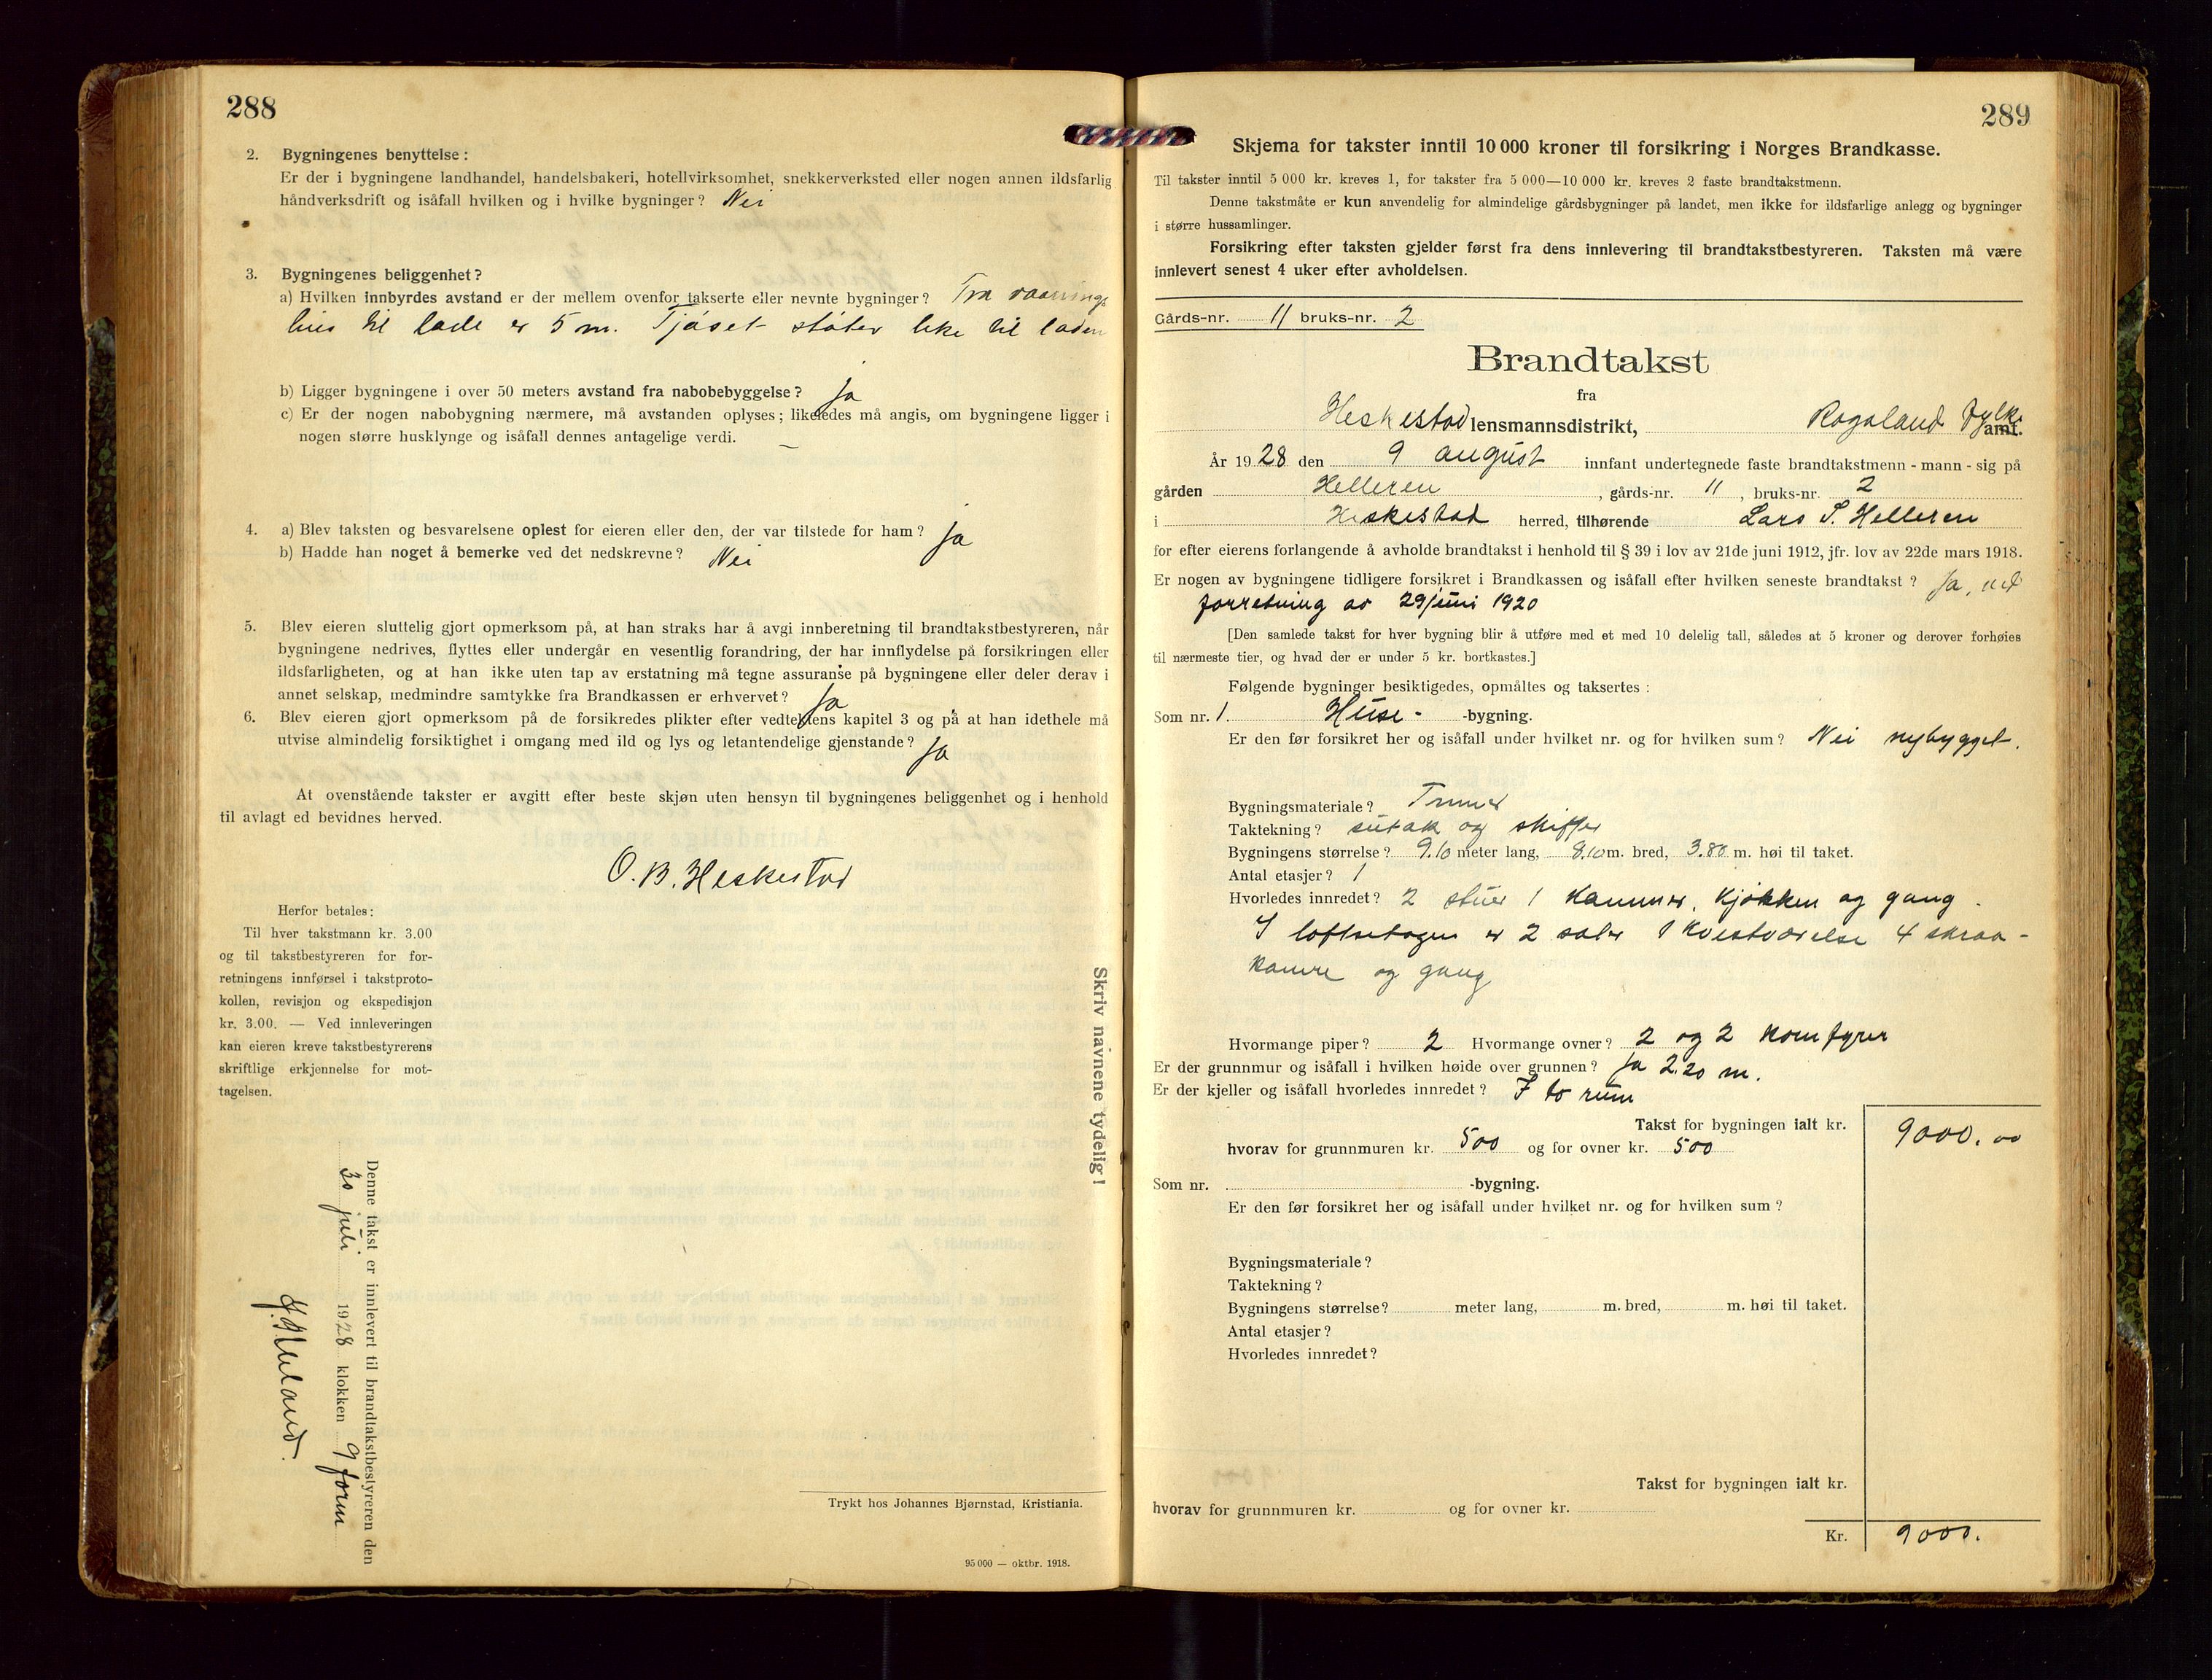 288
2. Bygningenes benyttelse:
Er der i bygningene landhandel, handelsbakeri, hotellvirksomhet, snekkerverksted eller nogen annen ildsfarlig
håndverksdrift og isåfall hvilken og i hvilke bygninger? Nei
3. Bygningenes beliggenhet?
a) Hvilken innbyrdes avstand er der mellem ovenfor takserte eller nevnte bygninger? Fra vaanings
hus til lade er 5 m. Fjøset støter like til laden
b) Ligger bygningene i over 50 meters avstand fra nabobebyggelse? Ja
c) Er der nogen nabobygning nærmere, må avstanden oplyses; likeledes må angis, om bygningene ligger i
nogen større husklynge og isåfall dennes antagelige verdi. —
4. a) Blev taksten og besvarelsene oplest for eieren eller den, der var tilstede for ham? Ja
b) Hadde han noget å bemerke ved det nedskrevne? Nei
5. Blev eieren sluttelig gjort opmerksom på, at han straks har å avgi innberetning til brandtakstbestyreren, når
bygningene nedrives, flyttes eller undergår en vesentlig forandring, der har innflydelse på forsikringen eller
ildsfarligheten, og at han ikke uten tap av erstatning må tegne assuranse på bygningene eller deler derav i
annet selskap, medmindre samtykke fra Brandkassen er erhvervet? Ja
6. Blev eieren gjort opmerksom på de forsikredes plikter efter vedtektens kapitel 3 og på at han idethele må
utvise almindelig forsiktighet i omgang med ild og lys og letantendelige gjenstande? Ja
At ovenstående takster er avgitt efter beste skjøn uten hensyn til bygningenes beliggenhet og i henhold
til avlagt ed bevidnes herved.
O. B. Heskestad
Herfor betales:
Til hver takstmann kr. 3.00
og til takstbestyreren for for-
retningens innførsel i takstproto-
kollen, revisjon og ekspedisjon
kr. 3.00. — Ved innleveringen
kan eieren kreve takstbestyrerens
skriftlige erkjennelse for mot-
tagelsen.
Denne takst er innlevert til brandtakstbestyreren den
30 juli 1928 klokken 9 form
Skriv navnene tydelig!
Trykt hos Johannes Bjørnstad, Kristiania.
95 000 — oktbr. 1918.
289
Skjema for takster inntil 10 000 kroner til forsikring i Norges Brandkasse.
Til takster inntil 5 000 kr. kreves 1, for takster fra 5 000—10 000 kr. kreves 2 faste brandtakstmenn.
Denne takstmåte er kun anvendelig for almindelige gårdsbygninger på landet, men ikke for ildsfarlige anlegg og bygninger
i større hussamlinger.
Forsikring efter taksten gjelder først fra dens innlevering til brandtakstbestyreren. Taksten må være
innlevert senest 4 uker efter avholdelsen.
Gårds-nr. 11 bruks-nr. 2
Brandtakst
fra
Heskestad lensmannsdistrikt, Rogaland fylke amt.
År 1928 den 9 august innfant undertegnede faste brandtakstmenn - mann - sig på
gården Helleren, gårds-nr. 11, bruks-nr. 2
i Heskestad herred, tilhørende Lars S. Helleren
for efter eierens forlangende å avholde brandtakst i henhold til § 39 i lov av 21de juni 1912, jfr. lov av 22de mars 1918.
Er nogen av bygningene tidligere forsikret i Brandkassen og isåfall efter hvilken seneste brandtakst? Ja, ved
forretning av 29/juni 1920
[Den samlede takst for hver bygning blir å utføre med et med 10 delelig tall, således at 5 kroner og derover forhøies
til nærmeste tier, og hvad der er under 5 kr. bortkastes.]
Følgende bygninger besiktigedes, opmåltes og taksertes:
Som nr. 1. Huse- -bygning.
Er den før forsikret her og isåfall under hvilket nr. og for hvilken sum? Nei nybygget.
Bygningsmateriale? Tømmer
Taktekning? sutak og skiffer
Bygningens størrelse? 9.10 meter lang, 8.10 m. bred, 3.80 m. høi til taket.
Antal etasjer? 1
Hvorledes innredet? 2 stuer 1 kammer, kjøkken og gang.
I loftsetagen er 2 saler 1 kvistværelse 4 skraa-
kamre og gang
Hvormange piper? 2 Hvormange ovner? 2 og 2 komfyrer
Er der grunnmur og isåfall i hvilken høide over grunnen? Ja 2.20 m.
Er der kjeller og isåfall hvorledes innredet? I to rum
Takst for bygningen ialt kr. 9000.00
hvorav for grunnmuren kr. 500 og for ovner kr. 500
Som nr. -bygning.
Er den før forsikret her og isåfall under hvilket nr. og for hvilken sum?
Bygningsmateriale?
Taktekning?
Bygningens størrelse? meter lang, m. bred, m. høi til taket.
Antal etasjer?
Hvorledes innredet?
Takst for bygningen ialt kr.
hvorav for grunnmuren kr. og for ovner kr.
Kr. 9000.